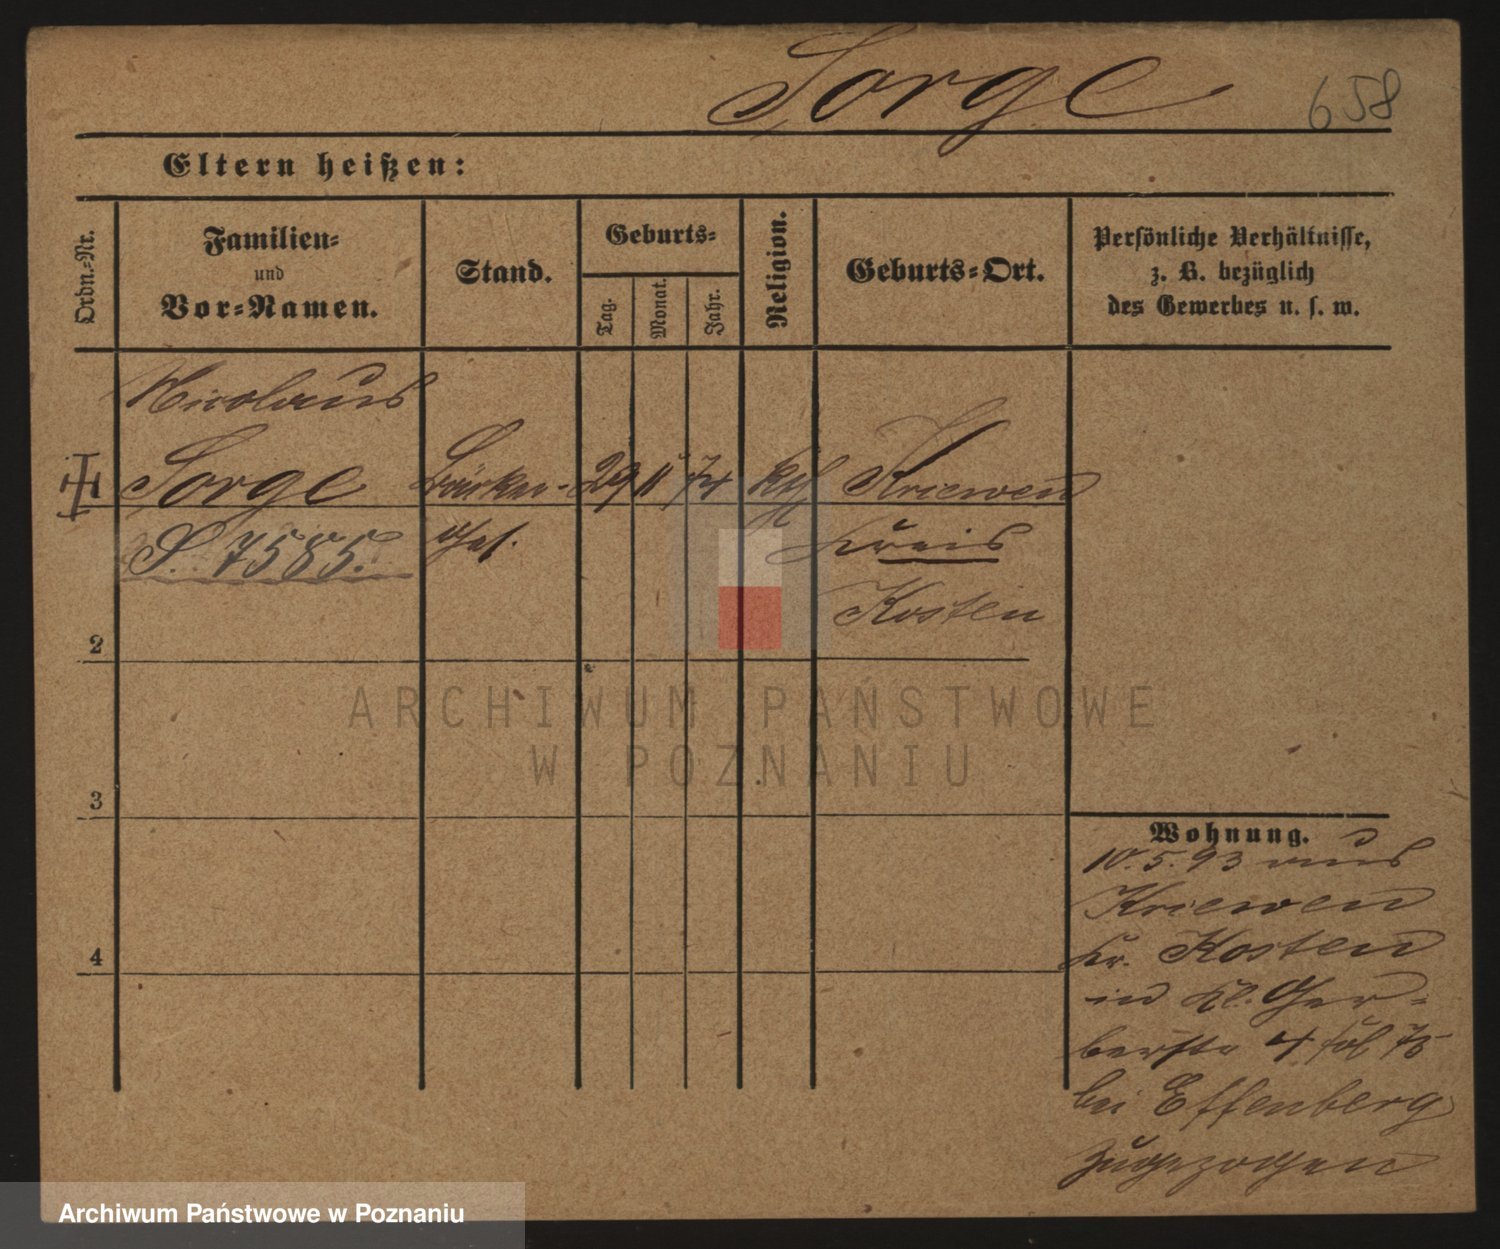 Sorge 658
Eltern heißen:
Ordn.-Nr.
Familien-
und
Vor-Namen.
Stand.
Geburts-
Tag.
Monat.
Jahr.
Religion.
Geburts-Ort.
Persönliche Verhältnisse,
z. B. bezüglich
des Gewerbes u. s. w.
Nicolaus
Sorge Bäcker- 29 11 74 kth Kriewen
S. 7585. Ges. Kreis
Kosten
2
3
4
Wohnung.
10.5.93 aus
Kriewen
Kr. Kosten
in Kl. Ger-
berstr 4 fol 75
bei Effenberg
zugezogen
ARCHIWUM PAŃSTWOWE
W POZNANIU
Archiwum Państwowe w Poznaniu